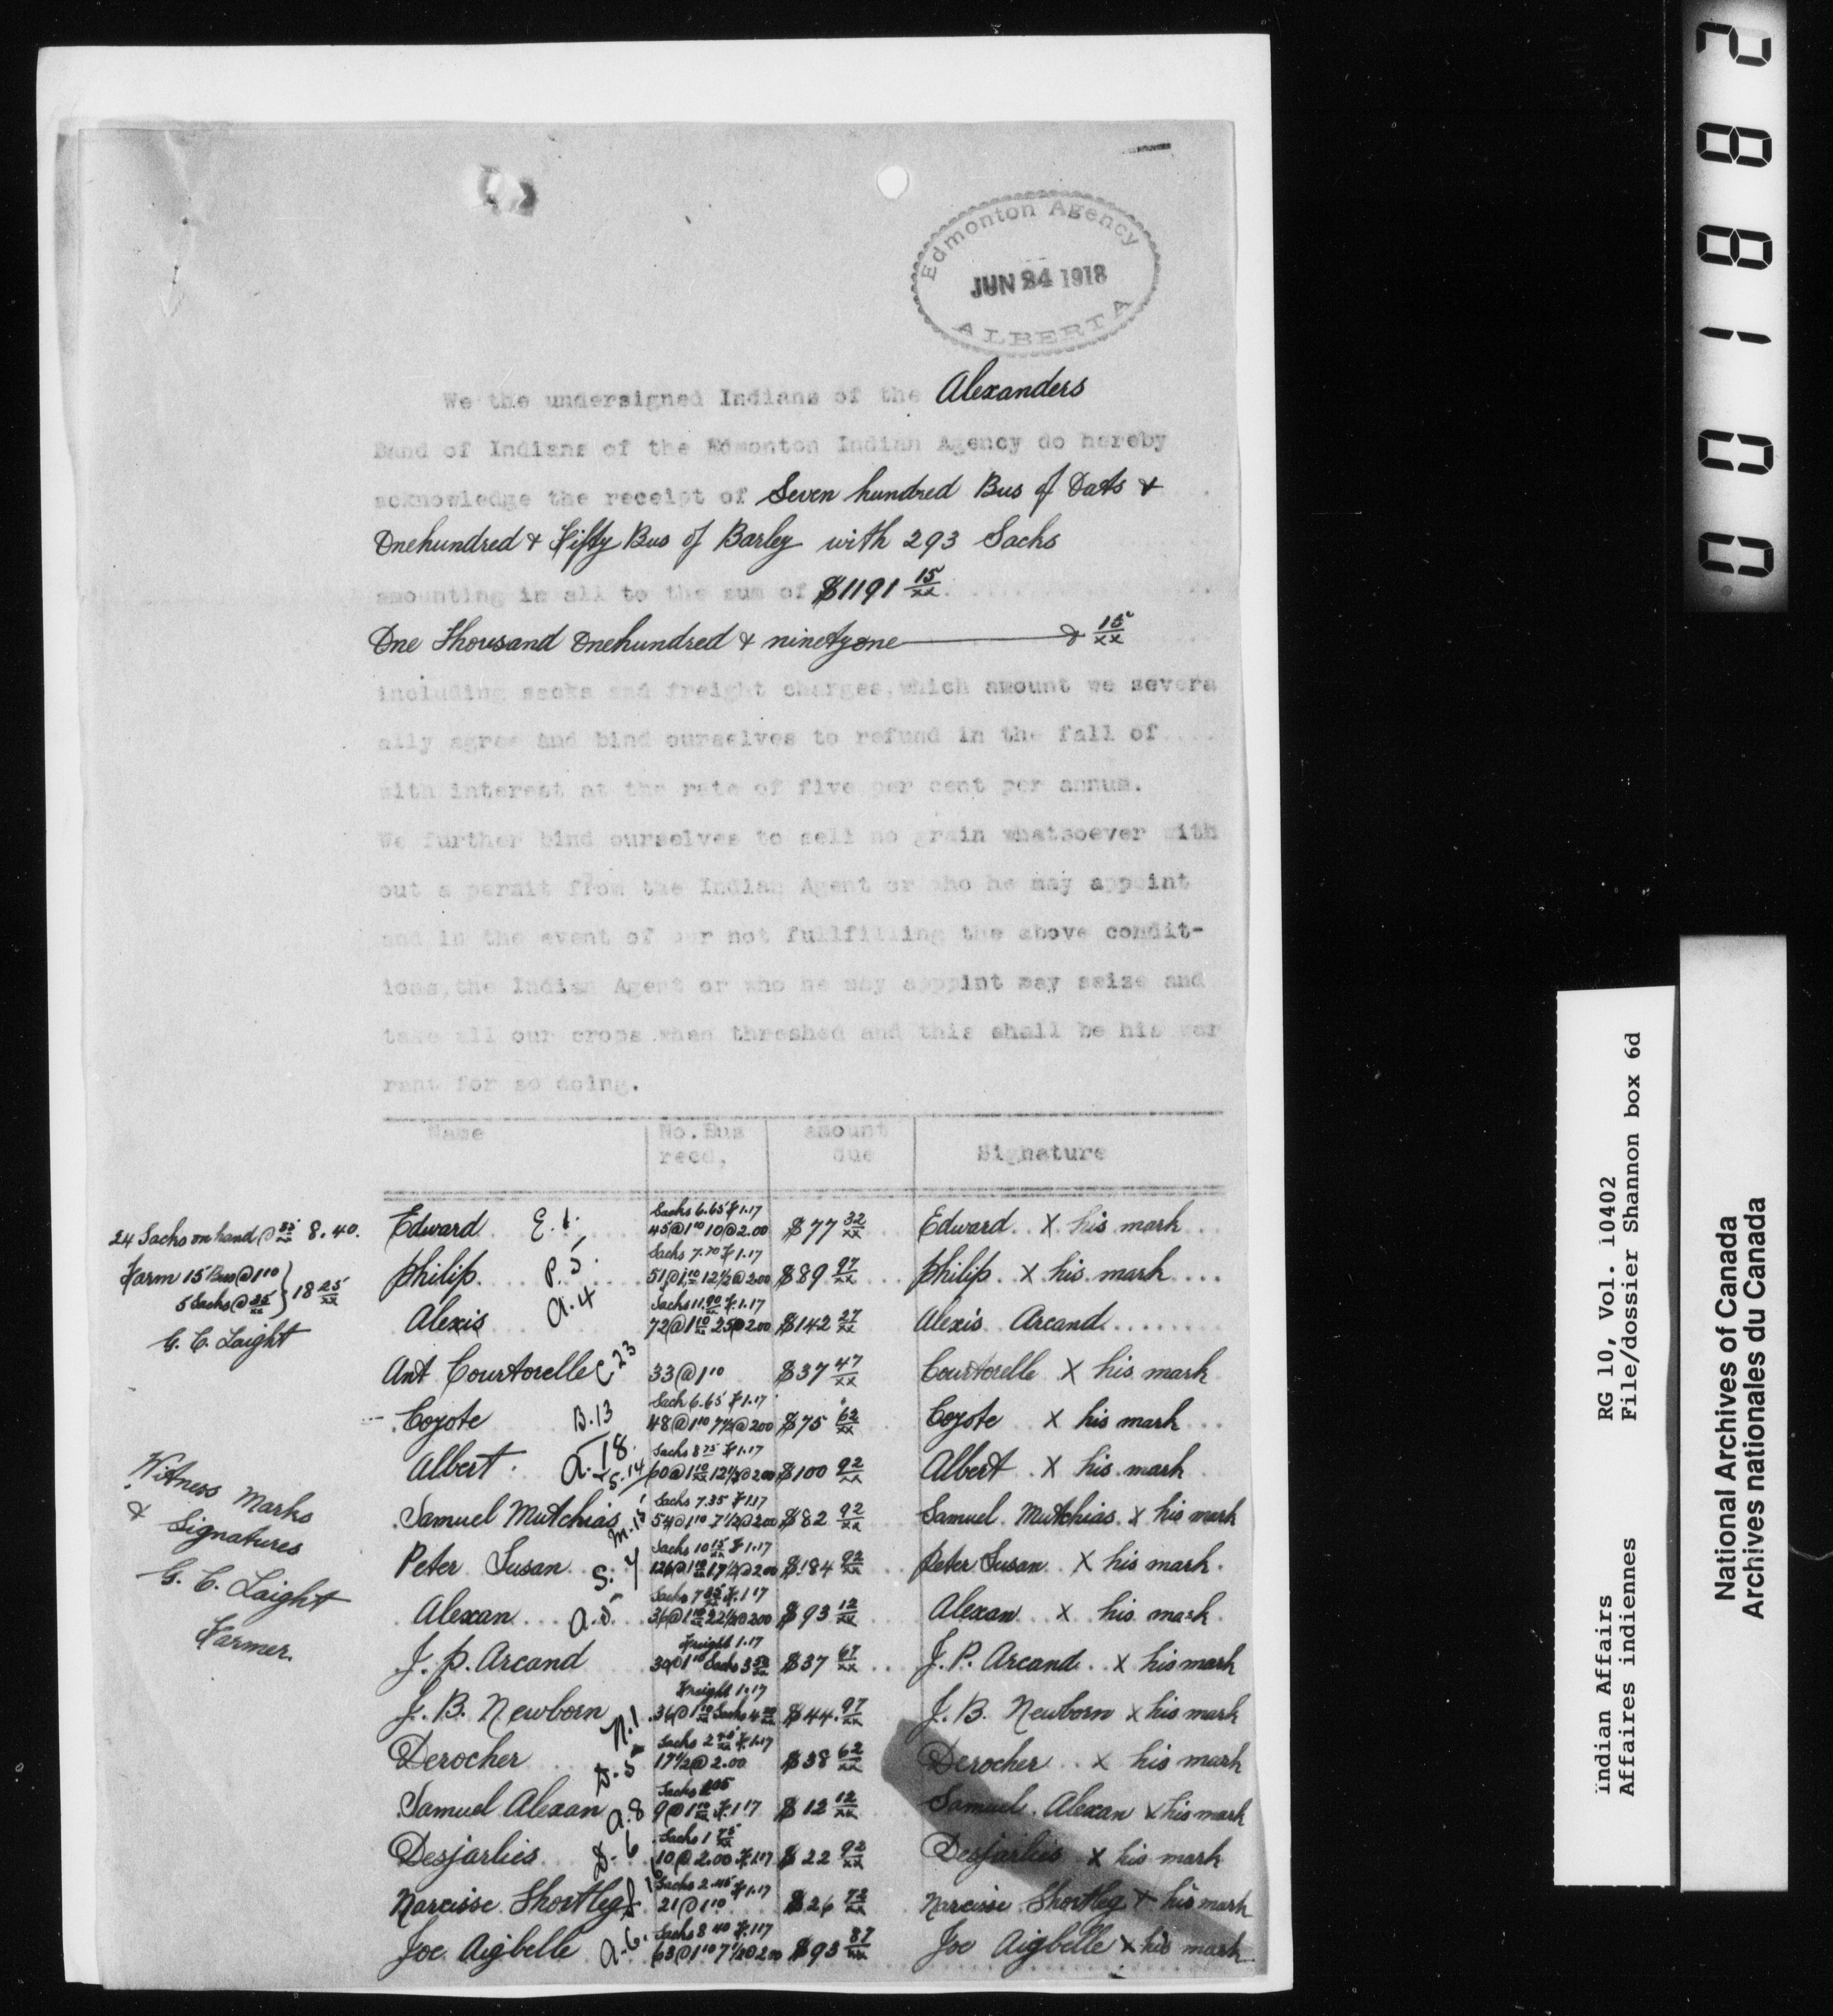 Edmonton Agency
JUN 24 1918
ALBERTA
We the undersigned Indians of the Alexanders
Band of Indians of the Edmonton Indian Agency do hereby
acknowledge the receipt of Seven hundred Bus of Oats &
Onehundred & Fifty Bus of Barley with 293 Sacks
amounting in all to the sum of $1191 15/xx
One Thousand Onehundred & ninetyone & 15/xx
including sacks and freight charges, which amount we severa
ally agree and bind ourselves to refund in the fall of ....
with interest at the rate of five per cent per annum.
We further bind ourselves to sell no grain whatsoever with
out a permit from the Indian Agent or who he may appoint
and in the event of our not fullfilling the above condit-
ions, the Indian Agent or who he may apppint may seize and
take all our crops when threshed and this shall be his war
rant for so doing.
Name No. Bus recd. amount due Signature
24 Sacks on hand @ 35/xx 8.40.
Farm 15 Bus @ 1 10
5 Sacks @ 35/xx } 18 25/xx
G. C. Laight
Witness Marks
& Signatures
G. C. Laight
Farmer.
Sacks 6.65 F 1.17
Edward E. 1. 45 @ 1 10 10 @ 2.00 $77 32/xx Edward X his mark
Sacks 7.70 F 1.17
Philip. P. 5. 51 @ 1 10 12 1/2 @ 200 $89 97/xx Philip. X his mark
Sacks 11.90 F. 1.17
Alexis A. 4 72 @ 1 10 25 @ 200 $142 27/xx Alexis Arcand
Ant Courtorelle C 23 33 @ 1 10 $37 47/xx Courtorelle X his mark
Sack 6.65 F 1.17
Coyote B. 13 48 @ 1 10 7 1/2 @ 200 $75 62/xx Coyote X his mark
Sacks 8 75 F 1.17
Albert. A. 18. S. 14 60 @ 1 10 12 1/2 @ 200 $100 92/xx Albert X his mark
Sacks 7.35 F 1.17
Samuel Mutchias M. 15 54 @ 1 10 7 1/2 @ 200 $82 92/xx Samuel Mutchias X his mark
Sacks 10 15 F 1.17
Peter Susan S. 7 126 @ 1 10 17 1/2 @ 200 $184 92/xx Peter Susan X his mark.
Sacks 7 35 F. 1.17
Alexan A. 5. 36 @ 1 10 22 1/2 @ 200 $93 12/xx Alexan X his mark.
Freight 1.17
J. P. Arcand 30 @ 1 10 Sacks 3 50/xx $37 67/xx J. P. Arcand X his mark
Freight 1.17
J. B. Newborn N. 1 36 @ 1 10 Sacks 4 20/xx $44. 97/xx J. B. Newborn X his mark
Sacks 2 45 F. 1.17
Derocher D. 5 17 1/2 @ 2.00 $38 62/xx Derocher X his mark
Sacks 105
Samuel Alexan A. 8 9 @ 1 10 F. 1 17 $12 12/xx Samuel. Alexan X his mark
Sacks 1 75/xx
Desjarlies D. 6 10 @ 2.00 F. 1.17 $22 92/xx Desjarlies X his mark
Sacks 2.45 F 1.17
Narcisse Shortleg 21 @ 1 10 $26 72/xx Narcisse Shortleg X his mark
Sacks 8 40 F. 1 17
Joe Aigbelle A. 6. 63 @ 1 10 7 1/2 @ 200 $93 87/xx Joe Aigbelle X his mark
001882
Indian Affairs RG 10, Vol. 10402
Affaires indiennes File/dossier Shannon box 6d
National Archives of Canada
Archives nationales du Canada